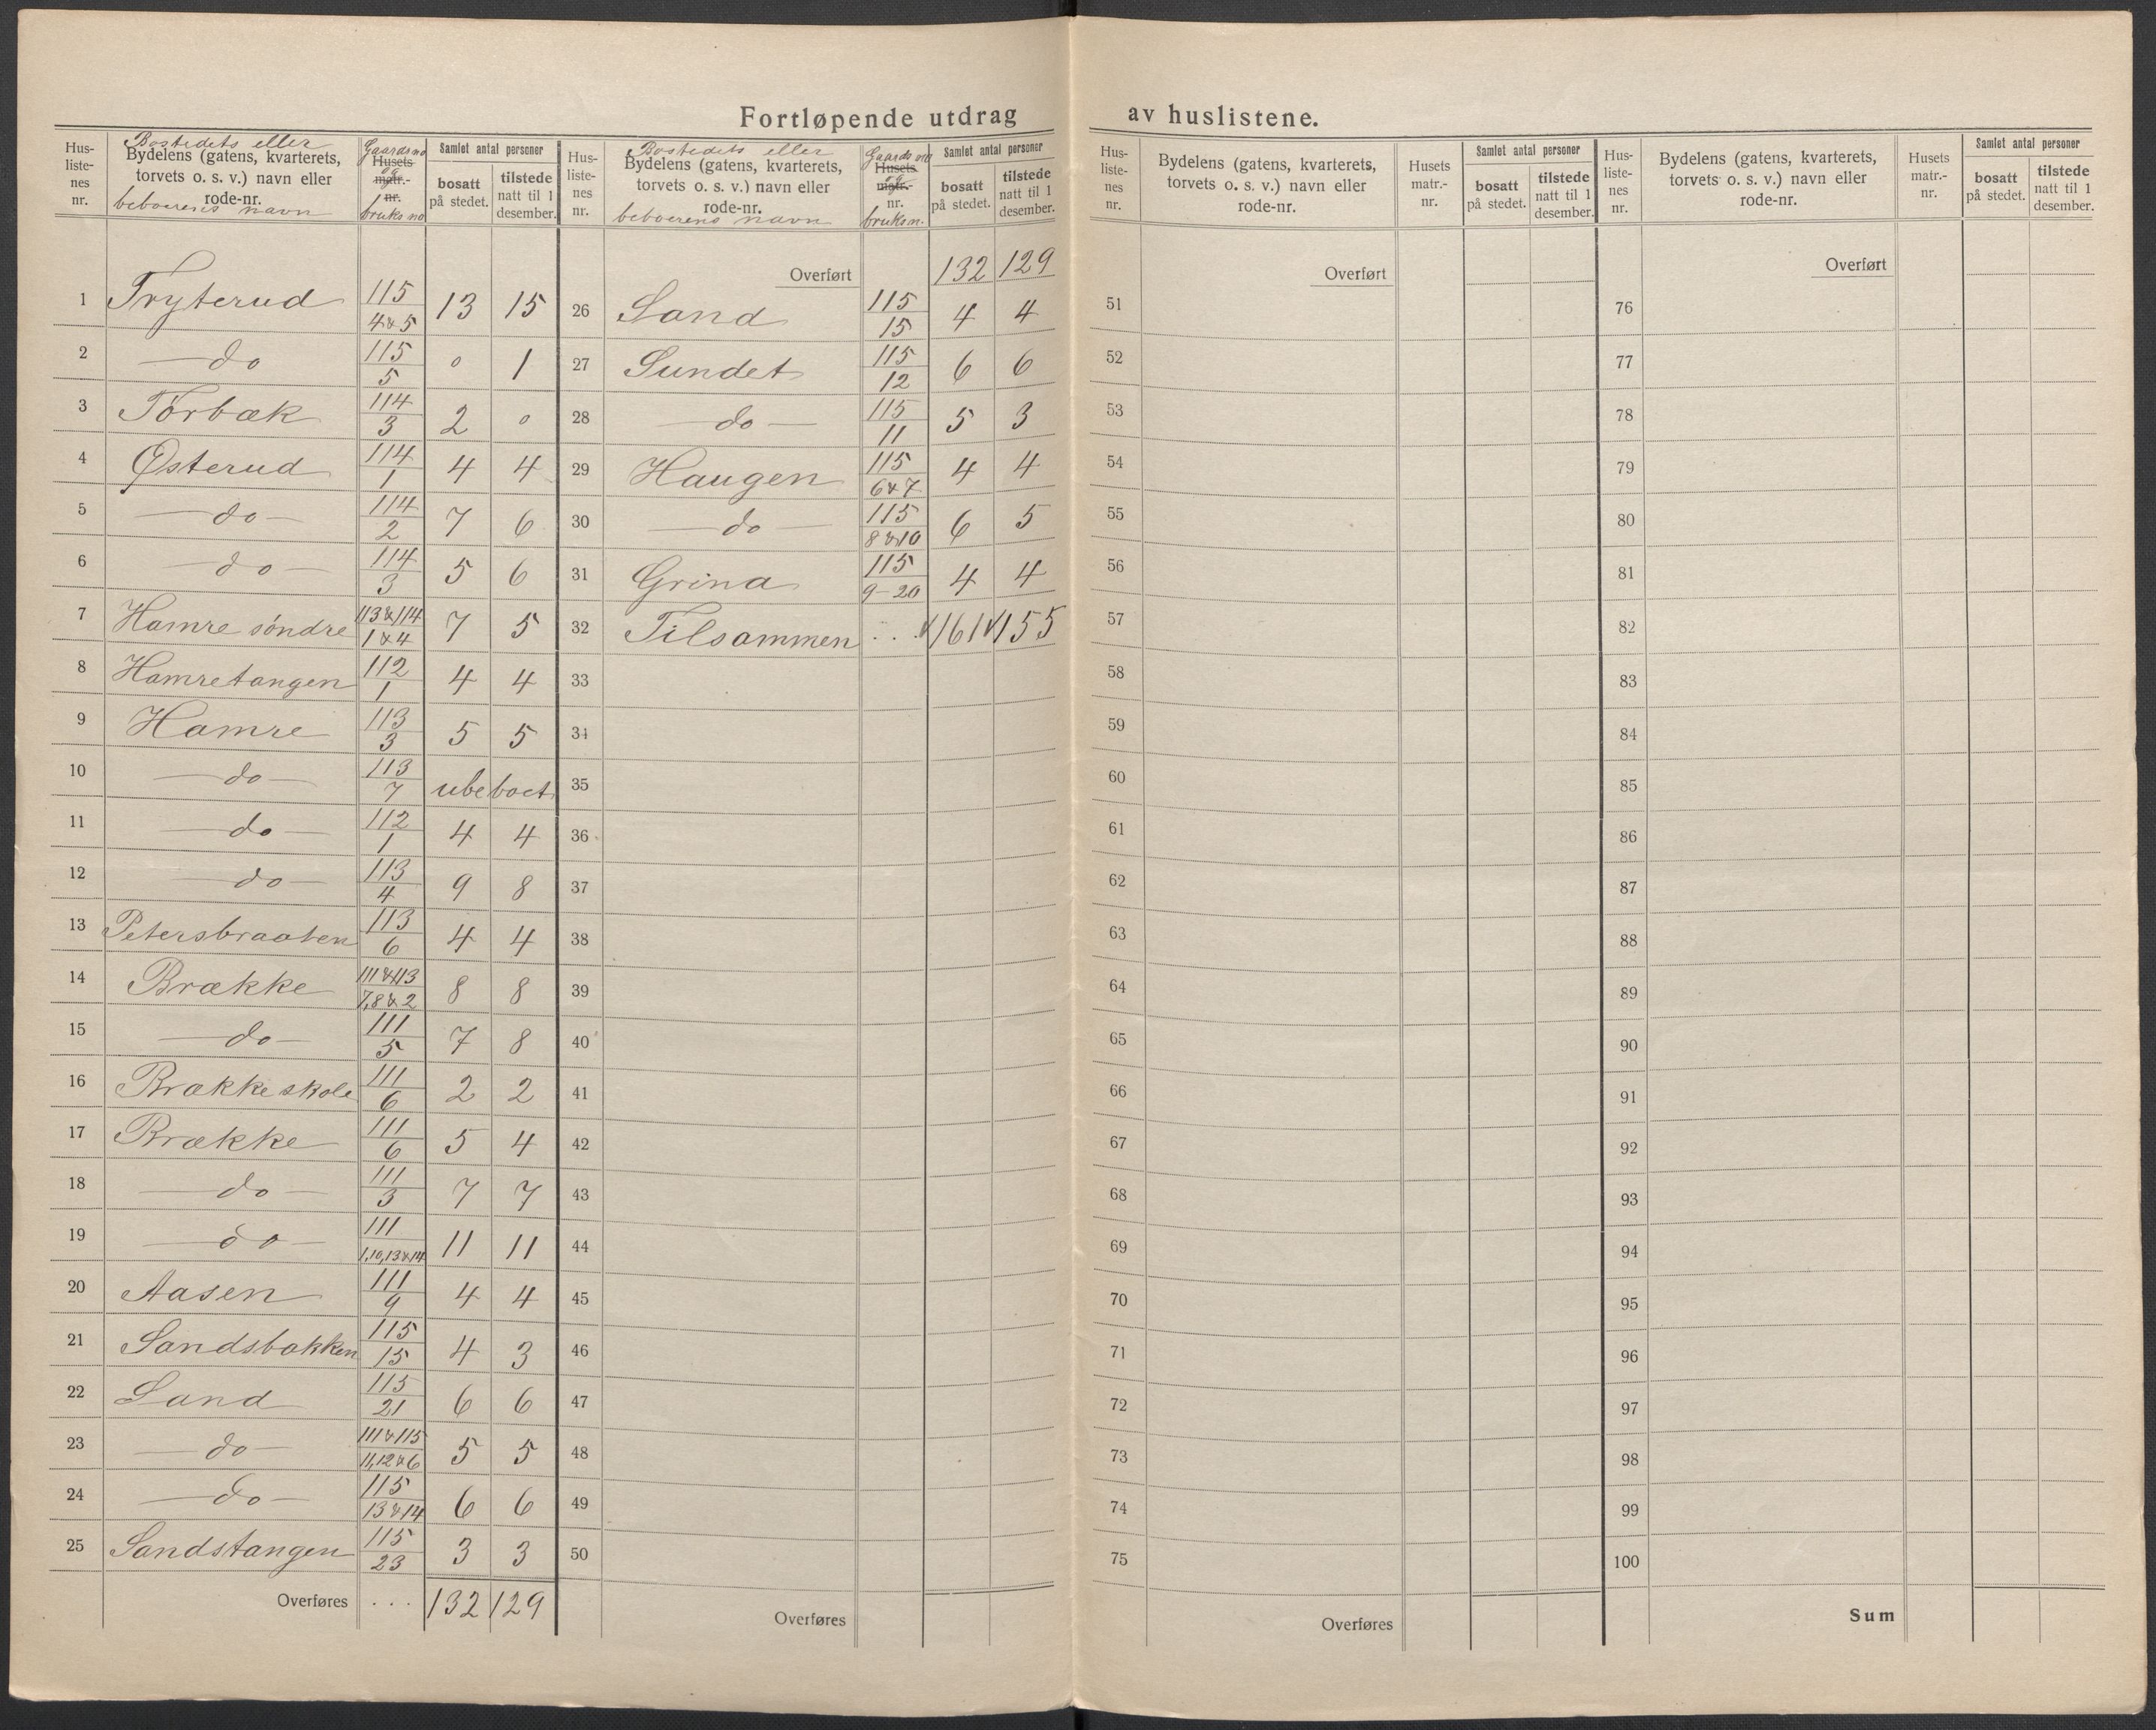 Fortløpende utdrag av huslistene.
Hus-listenes nr. | Bostedets eller Bydelens (gatens, kvarterets, torvets o. s. v.) navn eller rode-nr. beboerens navn | Gaardsno Husets og matr.-nr. bruksno | Samlet antal personer bosatt på stedet. | tilstede natt til 1 desember.
1 Tryterud 115 / 4&5 13 15
2 do 115 / 5 0 1
3 Törbæk 114 / 3 2 0
4 Østerud 114 / 1 4 4
5 do 114 / 2 7 6
6 do 114 / 3 5 6
7 Hamre söndre 113&114 / 1&4 7 5
8 Hamretangen 112 / 1 4 4
9 Hamre 113 / 3 5 5
10 do 113 / 7 ubeboet
11 do 112 / 1 4 4
12 do 113 / 4 9 8
13 Petersbraaten 113 / 6 4 4
14 Brække 111&113 / 7,8&2 8 8
15 do 111 / 5 7 8
16 Brække skole 111 / 6 2 2
17 Brække 111 / 6 5 4
18 do 111 / 3 7 7
19 do 111 / 1,10,13&14 11 11
20 Aasen 111 / 9 4 4
21 Sandsbakken 115 / 15 4 3
22 Sand 115 / 21 6 6
23 do 111&115 / 11,12&6 5 5
24 do 115 / 13&14 6 6
25 Sandstangen 115 / 23 3 3
Overføres . . . 132 129
Hus-listenes nr. | Bostedets eller Bydelens (gatens, kvarterets, torvets o. s. v.) navn eller rode-nr. beboerens navn | Gaards no Husets og matr.-nr. bruksn. | Samlet antal personer bosatt på stedet. | tilstede natt til 1 desember.
Overført 132 129
26 Sand 115 / 15 4 4
27 Sundet 115 / 12 6 6
28 do 115 / 11 5 3
29 Haugen 115 / 6&7 4 4
30 do 115 / 8&10 6 5
31 Grina 115 / 9-20 4 4
32 Tilsammen . . . 161 155
33
34
35
36
37
38
39
40
41
42
43
44
45
46
47
48
49
50
Overføres
Hus-listenes nr. | Bydelens (gatens, kvarterets, torvets o. s. v.) navn eller rode-nr. | Husets matr.-nr. | Samlet antal personer bosatt på stedet. | tilstede natt til 1 desember.
Overført
51
52
53
54
55
56
57
58
59
60
61
62
63
64
65
66
67
68
69
70
71
72
73
74
75
Overføres
Hus-listenes nr. | Bydelens (gatens, kvarterets, torvets o. s. v.) navn eller rode-nr. | Husets matr.-nr. | Samlet antal personer bosatt på stedet. | tilstede natt til 1 desember.
Overført
76
77
78
79
80
81
82
83
84
85
86
87
88
89
90
91
92
93
94
95
96
97
98
99
100
Sum